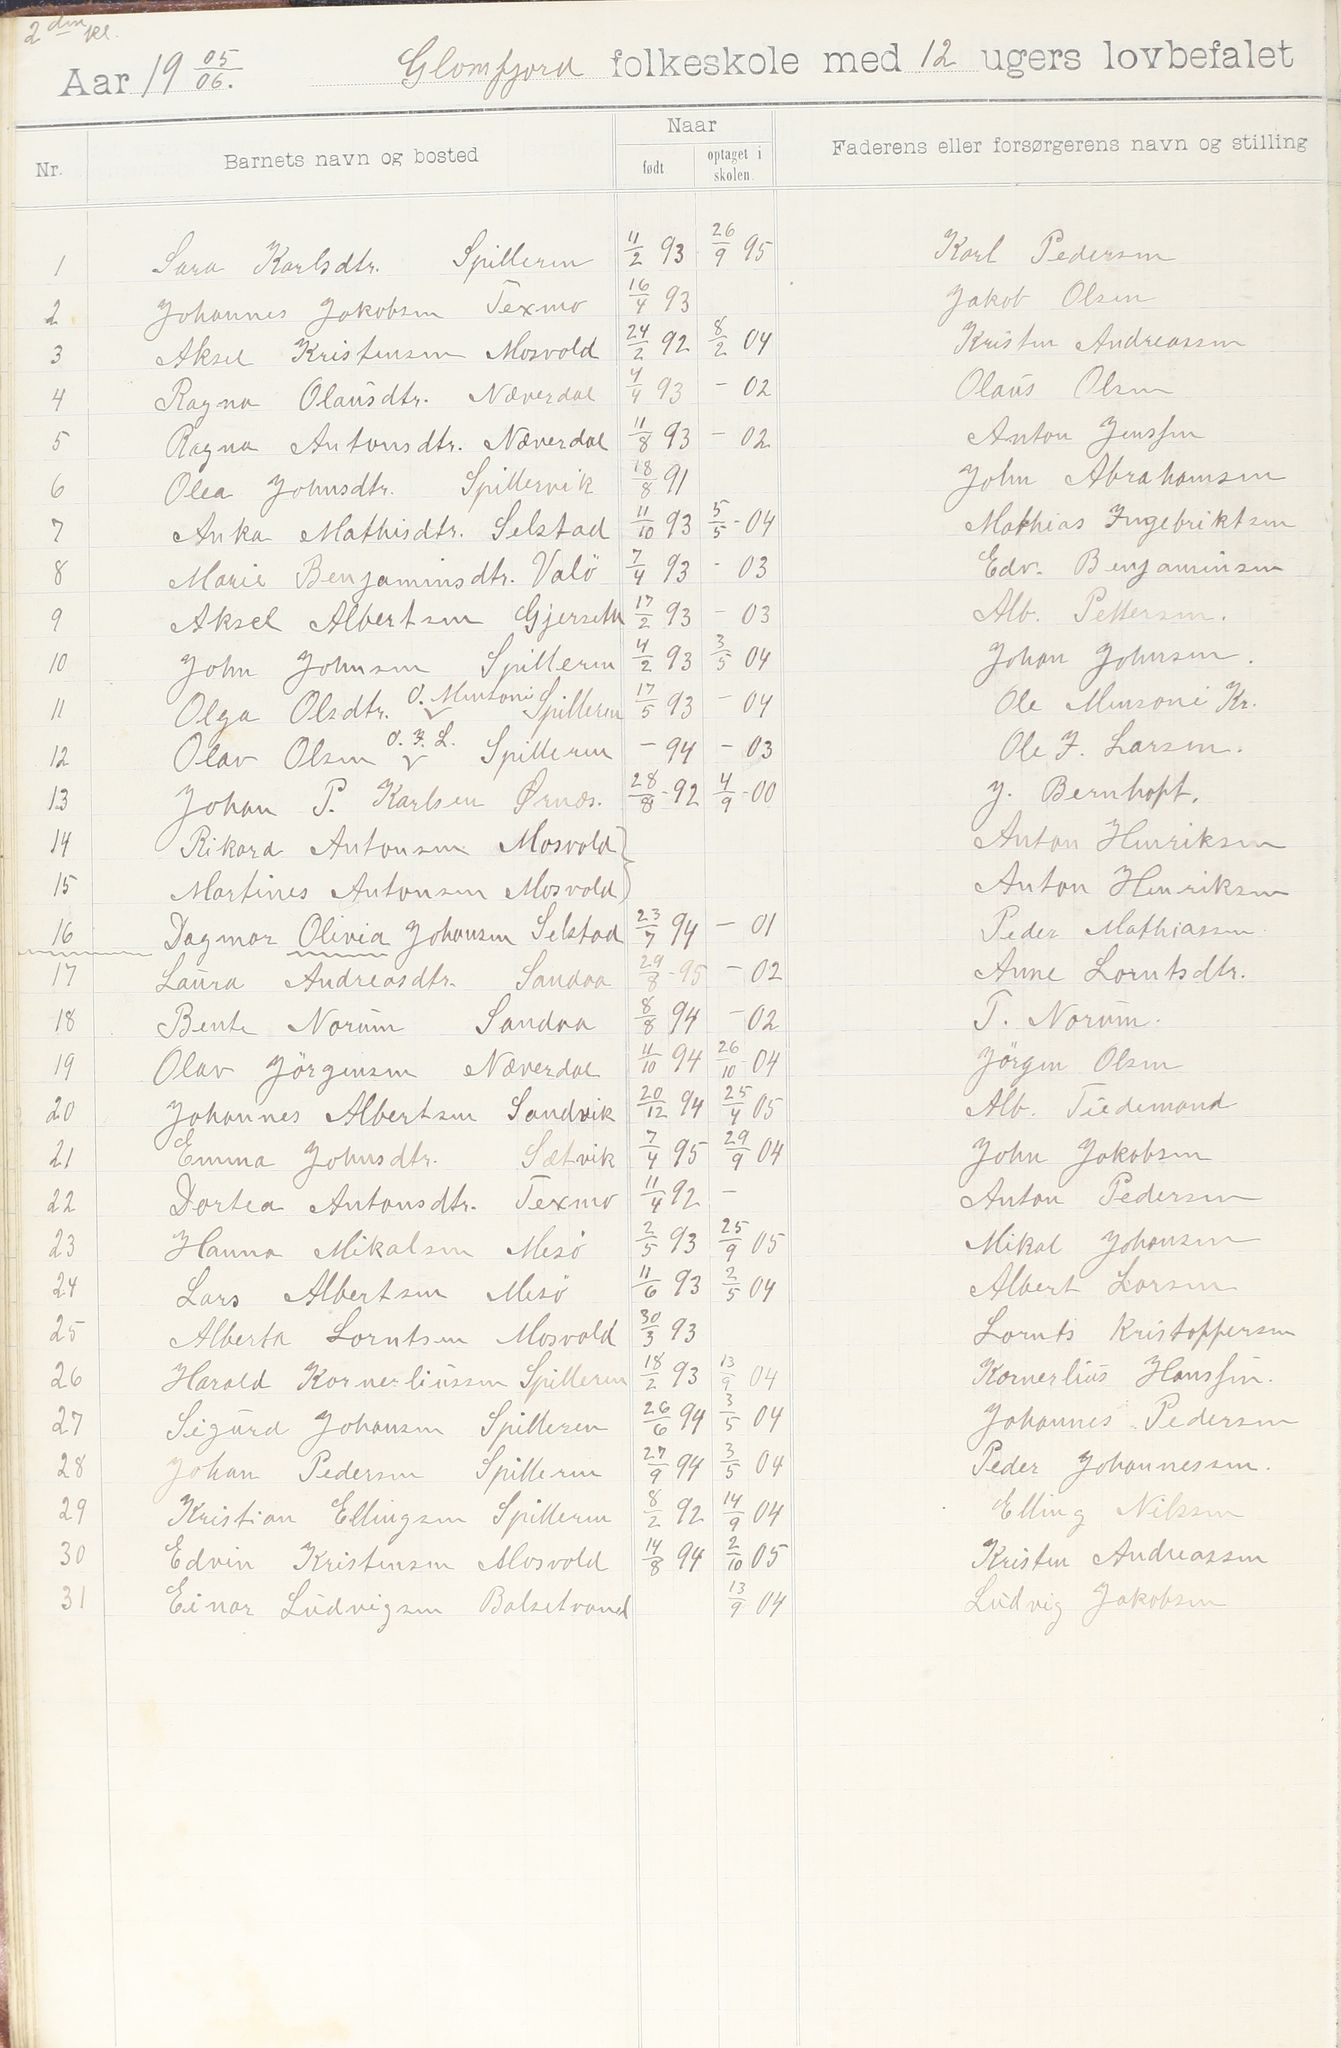 2den kl.
Aar 19 05/06. Glomfjord folkeskole med 12 ugers lovbefalet
Nr. Barnets navn og bosted Naar født. optaget i skolen. Faderens eller forsørgerens navn og stilling
1 Sara Karlsdtr. Spilleren 11/2 93 26/9 95 Karl Pedersen
2 Johannes Jakobsen Texmo 16/4 93 Jakob Olsen
3 Aksel Kristensen Mosvold 24/2 92 8/2 04 Kristen Andreassen
4 Ragna Olausdtr. Næverdal 4/4 93 - 02 Olaus Olsen
5 Ragna Antonsdtr. Næverdal 11/8 93 - 02 Anton Jenssen
6 Olea Johnsdtr. Spillervik 18/8 91 John Abrahamsen
7 Anka Mathisdtr. Selstad 11/10 93 5/5 - 04 Mathias Ingebriktsen
8 Marie Benjaminsdtr. Valö 7/4 93 - 03 Edv. Benjaminsen
9 Aksel Albertsen Gjerseth 17/2 93 - 03 Alb. Pettersen.
10 John Johnsen Spilleren 4/2 93 3/5 04 Johan Johnsen.
11 Olga Olsdtr. O. Mensoni Spilleren 17/5 93 - 04 Ole Mensoni Kr.
12 Olav Olsen O. J. L. Spilleren - 94 - 03 Ole J. Larsen.
13 Johan P. Karlsen Ørnes. 28/8 - 92 4/9 - 00 J. Bernhoft.
14 Rikard Antonsen Mosvold} Anton Henriksen
15 Martines Antonsen Mosvold} Anton Henriksen
16 Dagmar Olivia Johansen Selstad 23/7 94 - 01 Peder Mathiassen.
17 Laura Andreasdtr. Sandaa 29/8 - 95 - 02 Anne Lorntsdtr.
18 Bente Norum Sandaa 8/8 94 - 02 T. Norum.
19 Olav Jörgensen Næverdal 11/10 94 26/10 - 04 Jörgen Olsen
20 Johannes Albertsen Sandvik 20/12 94 25/4 05 Alb. Tiedemand
21 Emma Johnsdtr. Sætvik 7/4 95 29/9 04 John Jakobsen
22 Dortea Antonsdtr. Texmo 11/4 92 - Anton Pedersen
23 Hanna Mikalsen Mesö 2/5 93 25/9 05 Mikal Johansen
24 Lars Albertsen Mesö 11/6 93 2/5 04 Albert Larsen
25 Alberta Lorntsen Mosvold 30/3 93 Lornts Kristoffersen
26 Harald Kornerliussen Spilleren 18/2 93 13/9 04 Kornerlius Hanssen.
27 Sigurd Johansen Spilleren 26/6 94 3/5 04 Johannes Pedersen
28 Johan Pedersen Spilleren 27/9 94 3/5 04 Peder Johannessen.
29 Kristian Ellingsen Spilleren 8/2 92 14/9 04 Elling Nilssen
30 Edvin Kristensen Mosvold 14/8 94 2/10 05 Kristen Andreassen
31 Einar Ludvigsen Balsetvand 13/9 04 Ludvig Jakobsen